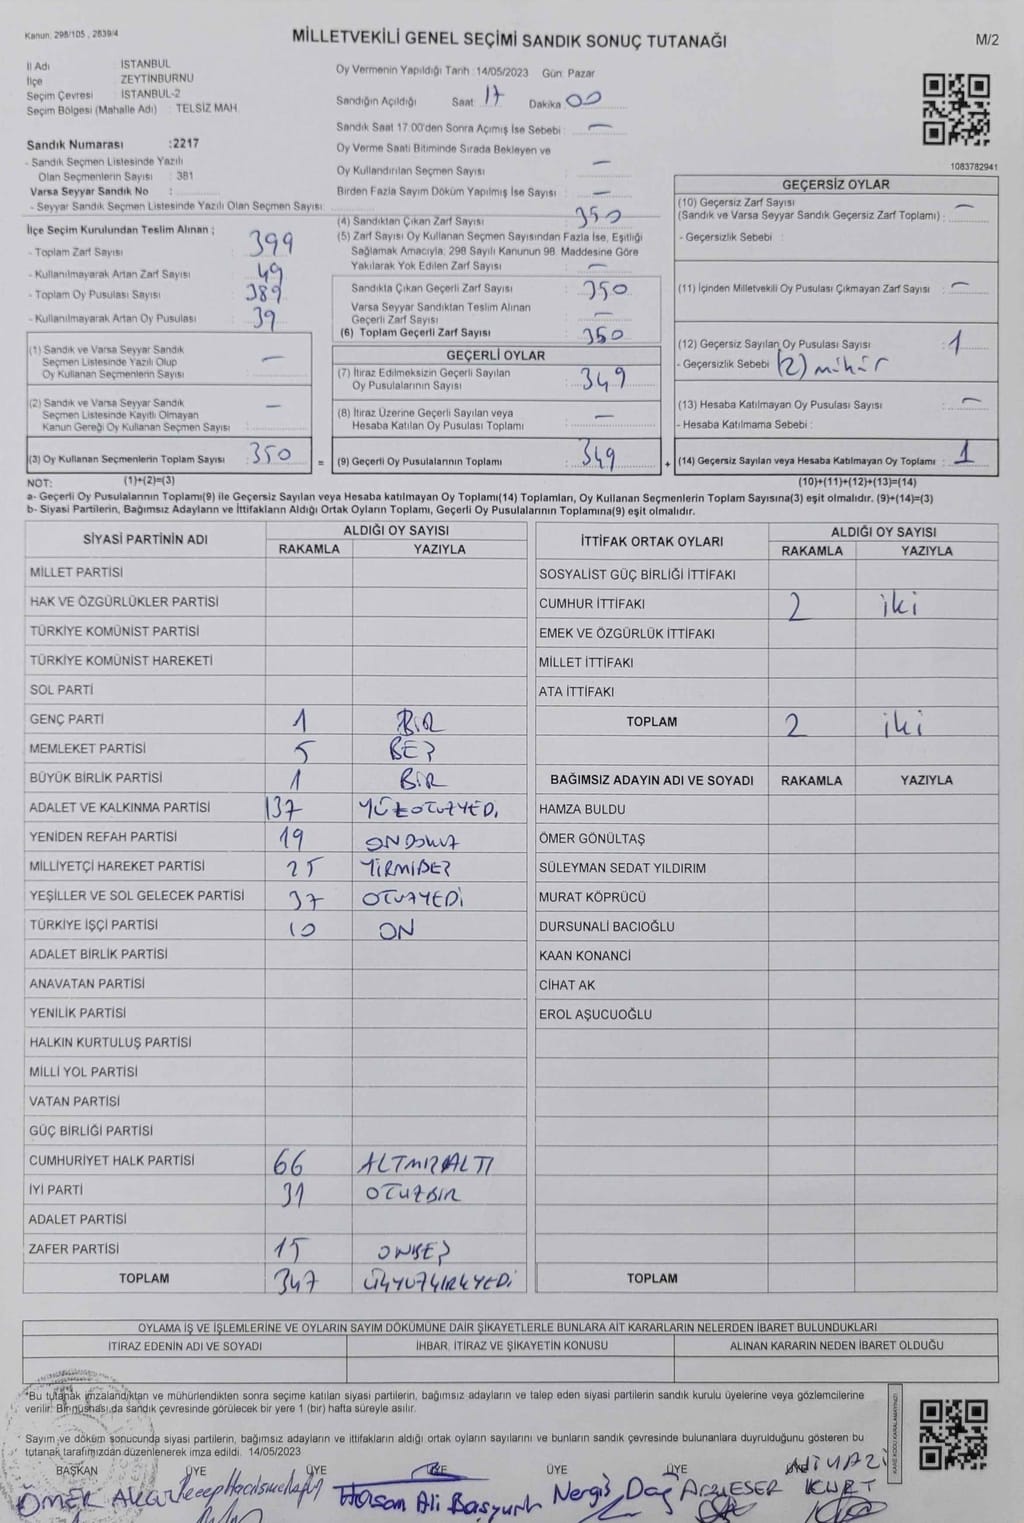 Kanun, 298/105 , 2839/4
MİLLETVEKİLİ GENEL SEÇİMİ SANDIK SONUÇ TUTANAĞI
M/2
İl Adı : İSTANBUL
İlçe : ZEYTİNBURNU
Seçim Çevresi : İSTANBUL-2
Seçim Bölgesi (Mahalle Adı) : TELSİZ MAH.
Sandık Numarası :2217
- Sandık Seçmen Listesinde Yazılı
Olan Seçmenlerin Sayısı : 381
Varsa Seyyar Sandık No :
- Seyyar Sandık Seçmen Listesinde Yazılı Olan Seçmen Sayısı:
Oy Vermenin Yapıldığı Tarih :14/05/2023 Gün: Pazar
Sandığın Açıldığı Saat 17 Dakika 00
Sandık Saat 17:00'den Sonra Açımış İse Sebebi : —
Oy Verme Saati Bitiminde Sırada Bekleyen ve
Oy Kullandırılan Seçmen Sayısı : —
Birden Fazla Sayım Döküm Yapılmış İse Sayısı : —
1083782941
İlçe Seçim Kurulundan Teslim Alınan ;
- Toplam Zarf Sayısı : 399
- Kullanılmayarak Artan Zarf Sayısı : 49
- Toplam Oy Pusulası Sayısı : 389
- Kullanılmayarak Artan Oy Pusulası : 39
(1) Sandık ve Varsa Seyyar Sandık
Seçmen Listesinde Yazılı Olup
Oy Kullanan Seçmenlerin Sayısı : —
(2) Sandık ve Varsa Seyyar Sandık
Seçmen Listesinde Kayıtlı Olmayan
Kanun Gereği Oy Kullanan Seçmen Sayısı : —
(3) Oy Kullanan Seçmenlerin Toplam Sayısı : 350
(4) Sandıktan Çıkan Zarf Sayısı : 350
(5) Zarf Sayısı Oy Kullanan Seçmen Sayısından Fazla İse, Eşitliği
Sağlamak Amacıyla; 298 Sayılı Kanunun 98. Maddesine Göre
Yakılarak Yok Edilen Zarf Sayısı : —
Sandıkta Çıkan Geçerli Zarf Sayısı : 350
Varsa Seyyar Sandıktan Teslim Alınan
Geçerli Zarf Sayısı : —
(6) Toplam Geçerli Zarf Sayısı : 350
GEÇERLİ OYLAR
(7) İtiraz Edilmeksizin Geçerli Sayılan
Oy Pusulalarının Sayısı : 349
(8) İtiraz Üzerine Geçerli Sayılan veya
Hesaba Katılan Oy Pusulası Toplamı : —
= (9) Geçerli Oy Pusulalarının Toplamı : 349
GEÇERSİZ OYLAR
(10) Geçersiz Zarf Sayısı
(Sandık ve Varsa Seyyar Sandık Geçersiz Zarf Toplamı) : —
- Geçersizlik Sebebi :
(11) İçinden Milletvekili Oy Pusulası Çıkmayan Zarf Sayısı : —
(12) Geçersiz Sayılan Oy Pusulası Sayısı : 1
- Geçersizlik Sebebi : (2) mühür
(13) Hesaba Katılmayan Oy Pusulası Sayısı : —
- Hesaba Katılmama Sebebi :
+ (14) Geçersiz Sayılan veya Hesaba Katılmayan Oy Toplamı : 1
NOT: (1)+(2)=(3)
(10)+(11)+(12)+(13)=(14)
a- Geçerli Oy Pusulalarının Toplamı(9) ile Geçersiz Sayılan veya Hesaba katılmayan Oy Toplamı(14) Toplamları, Oy Kullanan Seçmenlerin Toplam Sayısına(3) eşit olmalıdır. (9)+(14)=(3)
b- Siyasi Partilerin, Bağımsız Adayların ve İttifakların Aldığı Ortak Oyların Toplamı, Geçerli Oy Pusulalarının Toplamına(9) eşit olmalıdır.
SİYASİ PARTİNİN ADI
ALDIĞI OY SAYISI
RAKAMLA YAZIYLA
MİLLET PARTİSİ
HAK VE ÖZGÜRLÜKLER PARTİSİ
TÜRKİYE KOMÜNİST PARTİSİ
TÜRKİYE KOMÜNİST HAREKETİ
SOL PARTİ
GENÇ PARTİ 1 BİR
MEMLEKET PARTİSİ 5 BEŞ
BÜYÜK BİRLİK PARTİSİ 1 BİR
ADALET VE KALKINMA PARTİSİ 137 YÜZOTUZYEDİ
YENİDEN REFAH PARTİSİ 19 ONDOKUZ
MİLLİYETÇİ HAREKET PARTİSİ 25 YİRMİBEŞ
YEŞİLLER VE SOL GELECEK PARTİSİ 37 OTUZYEDİ
TÜRKİYE İŞÇİ PARTİSİ 10 ON
ADALET BİRLİK PARTİSİ
ANAVATAN PARTİSİ
YENİLİK PARTİSİ
HALKIN KURTULUŞ PARTİSİ
MİLLİ YOL PARTİSİ
VATAN PARTİSİ
GÜÇ BİRLİĞİ PARTİSİ
CUMHURİYET HALK PARTİSİ 66 ALTMIŞALTI
İYİ PARTİ 31 OTUZBİR
ADALET PARTİSİ
ZAFER PARTİSİ 15 ONBEŞ
TOPLAM 347 ÜÇYÜZKIRKYEDİ
İTTİFAK ORTAK OYLARI
ALDIĞI OY SAYISI
RAKAMLA YAZIYLA
SOSYALİST GÜÇ BİRLİĞİ İTTİFAKI
CUMHUR İTTİFAKI 2 iki
EMEK VE ÖZGÜRLÜK İTTİFAKI
MİLLET İTTİFAKI
ATA İTTİFAKI
TOPLAM 2 iki
BAĞIMSIZ ADAYIN ADI VE SOYADI RAKAMLA YAZIYLA
HAMZA BULDU
ÖMER GÖNÜLTAŞ
SÜLEYMAN SEDAT YILDIRIM
MURAT KÖPRÜCÜ
DURSUNALİ BACIOĞLU
KAAN KONANCİ
CİHAT AK
EROL AŞUCUOĞLU
TOPLAM
OYLAMA İŞ VE İŞLEMLERİNE VE OYLARIN SAYIM DÖKÜMÜNE DAİR ŞİKAYETLERLE BUNLARA AİT KARARLARIN NELERDEN İBARET BULUNDUKLARI
İTİRAZ EDENİN ADI VE SOYADI
İHBAR, İTİRAZ VE ŞİKAYETİN KONUSU
ALINAN KARARIN NEDEN İBARET OLDUĞU
*Bu tutanak imzalandıktan ve mühürlendikten sonra seçime katılan siyasi partilerin, bağımsız adayların ve talep eden siyasi partilerin sandık kurulu üyelerine veya gözlemcilerine
verilir. Bir nüshası da sandık çevresinde görülecek bir yere 1 (bir) hafta süreyle asılır.
Sayım ve döküm sonucunda siyasi partilerin, bağımsız adayların ve ittifakların aldığı ortak oyların sayılarını ve bunların sandık çevresinde bulunanlara duyrulduğunu gösteren bu
tutanak tarafımızdan düzenlenerek imza edildi. 14/05/2023
KARE KODU KARALAMAYINIZ!
BAŞKAN ÜYE ÜYE ÜYE ÜYE ÜYE ÜYE
ÖMER Hasan Ali Nergis Dağ Arzu ESER NİYAZİ KURT